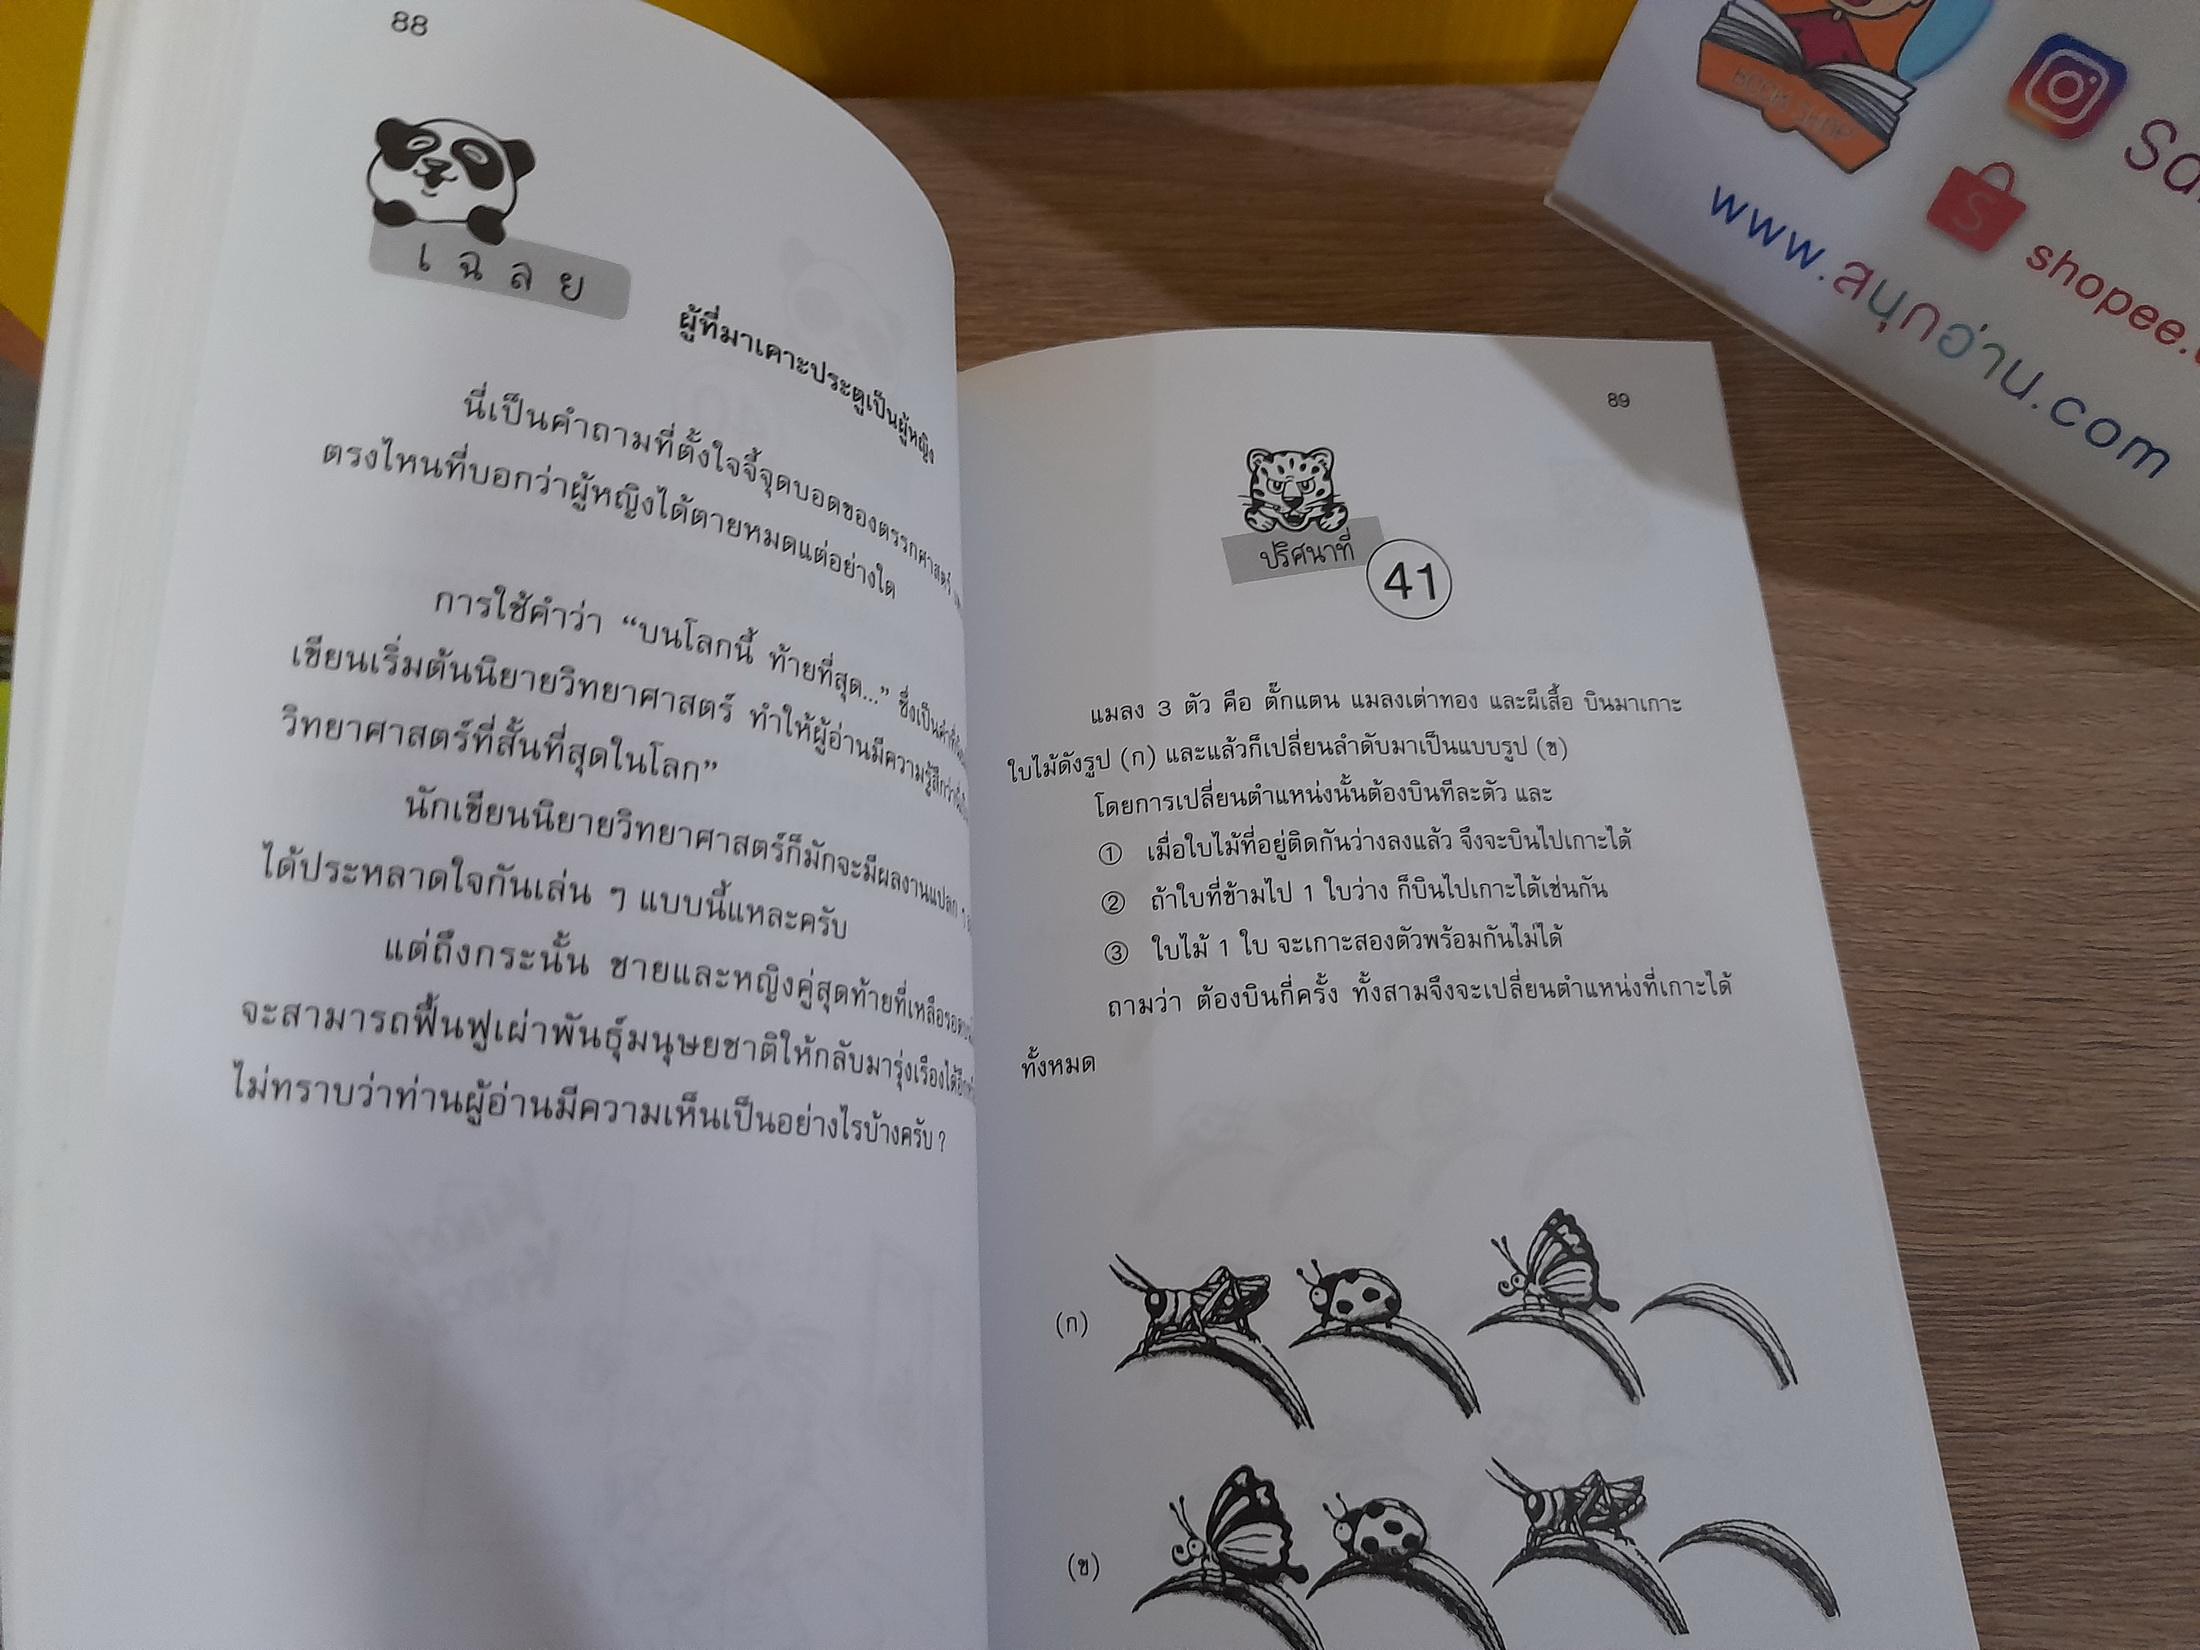 88
เฉลย
ผู้ที่มาเคาะประตูเป็นผู้หญิง
นี่เป็นคำถามที่ตั้งใจจี้จุดบอดของตรรกศาสตร์
ตรงไหนที่บอกว่าผู้หญิงได้ตายหมดแต่อย่างใด
การใช้คำว่า “บนโลกนี้ ท้ายที่สุด...” ซึ่งเป็นคำที่
เขียนเริ่มต้นนิยายวิทยาศาสตร์ ทำให้ผู้อ่านมีความรู้สึกว่า
วิทยาศาสตร์ที่สั้นที่สุดในโลก”
นักเขียนนิยายวิทยาศาสตร์ก็มักจะมีผลงานแปลก ๆ
ได้ประหลาดใจกันเล่น ๆ แบบนี้แหละครับ
แต่ถึงกระนั้น ชายและหญิงคู่สุดท้ายที่เหลือรอด
จะสามารถฟื้นฟูเผ่าพันธุ์มนุษยชาติให้กลับมารุ่งเรืองได้
ไม่ทราบว่าท่านผู้อ่านมีความเห็นเป็นอย่างไรบ้างครับ ?
89
ปริศนาที่ 41
แมลง 3 ตัว คือ ตั๊กแตน แมลงเต่าทอง และผีเสื้อ บินมาเกาะ
ใบไม้ดังรูป (ก) และแล้วก็เปลี่ยนลำดับมาเป็นแบบรูป (ข)
โดยการเปลี่ยนตำแหน่งนั้นต้องบินทีละตัว และ
① เมื่อใบไม้ที่อยู่ติดกันว่างลงแล้ว จึงจะบินไปเกาะได้
② ถ้าใบที่ข้ามไป 1 ใบว่าง ก็บินไปเกาะได้เช่นกัน
③ ใบไม้ 1 ใบ จะเกาะสองตัวพร้อมกันไม่ได้
ถามว่า ต้องบินกี่ครั้ง ทั้งสามจึงจะเปลี่ยนตำแหน่งที่เกาะได้
ทั้งหมด
(ก)
(ข)
BOOK SHOP
shopee.
www.สนุกอ่าน.com